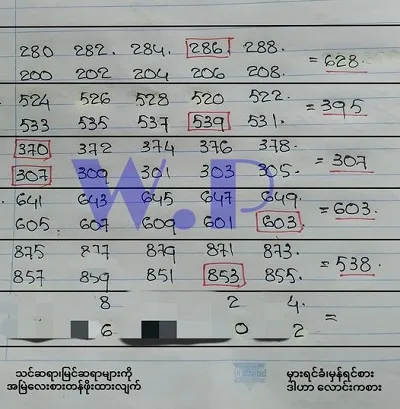 280 282. 284. 286. 288.
200 202 204 206 208. = 628.
524 526 528 520 522.
533 535 537 539 531. = 395
370 372 374 376 378.
307 309 301 303 305. = 307
641 643 645 647 649.
605. 607 609 601 603 = 603.
875 877 879 871 873.
857 859 851 853 855. = 538.
8 2 4.
6 0 2 =
W.P
သင်ဆရာ၊မြင်ဆရာများကို
အမြဲလေးစားတန်ဖိုးထားလျက်
မှားရင်ခံ၊မှန်ရင်စား
ဒါဟာ လောင်းကစား